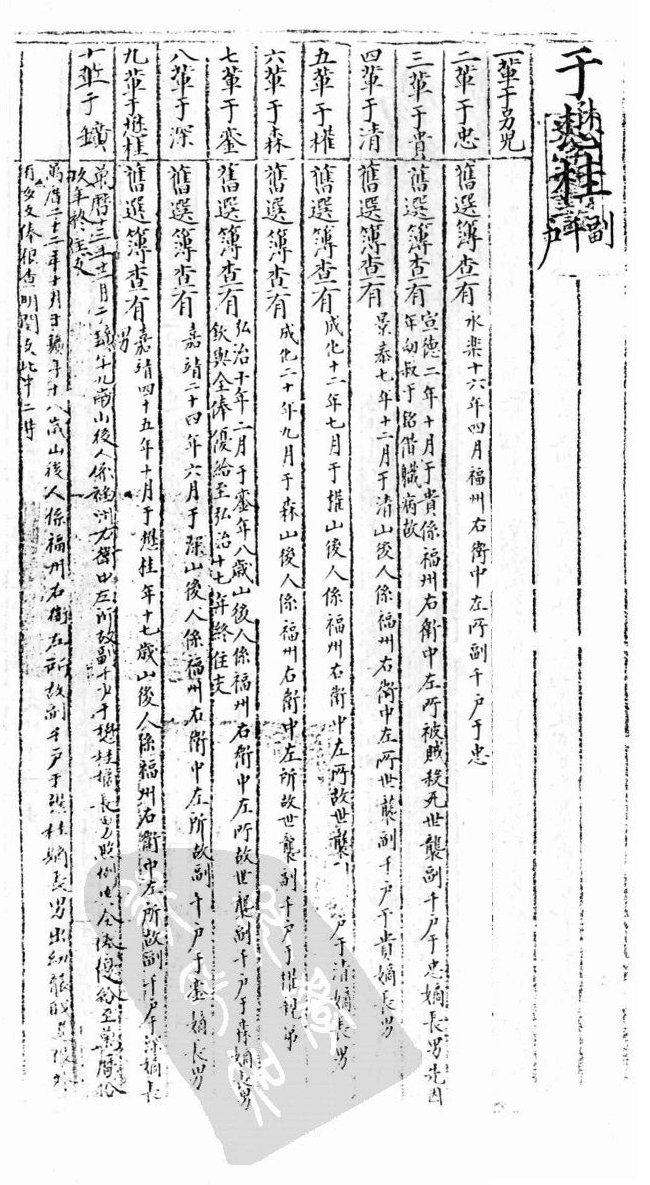 于懋桂
副
戶
一輩于另兒
二輩于忠
舊選簿查有
永樂十六年四月福州右衛中左所副千戶于忠
三輩于貴
舊選簿查有
宣德二年十月于貴係福州右衛中左所被賊殺死世襲副千戶于忠嫡長男先因
年幼叔于銘借職病故
四輩于清
舊選簿查有
景泰七年十二月于清山後人係福州右衛中左所世襲副千戶于貴嫡長男
五輩于權
舊選簿查有
成化十二年七月于權山後人係福州右衛中左所故世襲 戶于清嫡長男
六輩于森
舊選簿查有
成化二十年九月于森山後人係福州右衛中左所故世襲副千戶于權親弟
七輩于鑾
舊選簿查有
弘治十年二月于鑾年八歲山後人係福州右衛中左所故世襲副千戶于森嫡長男
欽與全俸優給至弘治十七年終住支
八輩于深
舊選簿查有
嘉靖二十四年六月于深山後人係福州右衛中左所故副千戶于鑾嫡長男
九輩于懋桂
舊選簿查有
嘉靖四十五年十月于懋桂年十七歲山後人係福州右衛中左所故副千戶于深嫡長
男
十輩于鑛
萬曆十三年十二月于鑛年九歲山後人係福州右衛中左所故副千戶于懋桂嫡長男照例與全俸優給至萬曆
年終住支
萬曆二十二年十月于鑛年十八歲山後人係福州右衛左所故副千戶于懋桂嫡長男出幼襲職
支俸糧查明開支比中二等